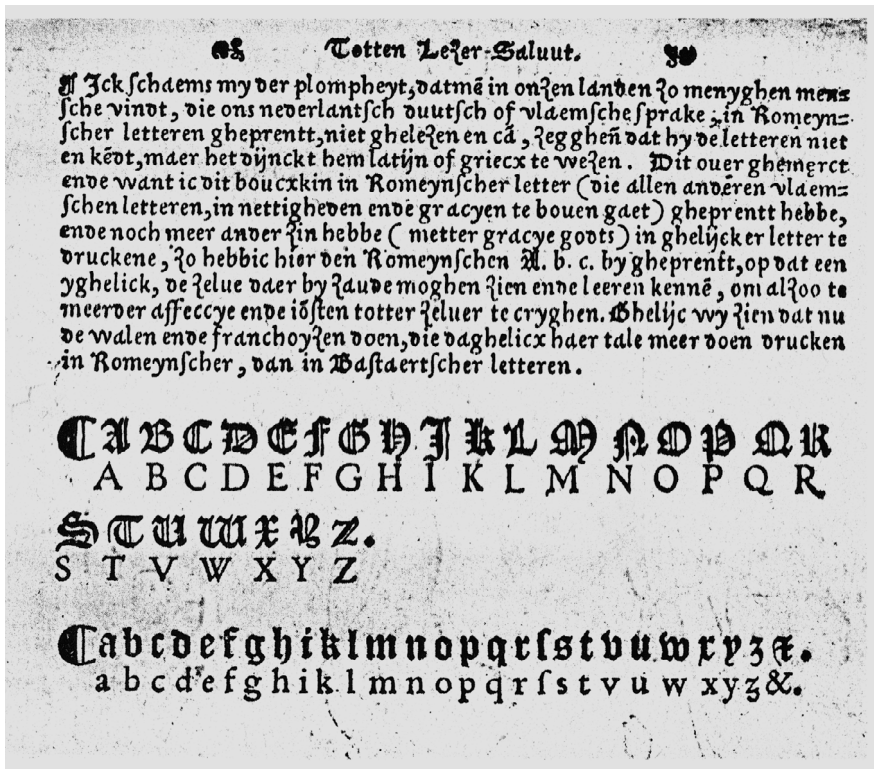 Totten Lezer-Saluut.
¶ Ick ſchaems my der plompheyt, datmē in onzen landen zo menyghen men=
ſche vindt, die ons nederlantſch duutſch of vlaemſche ſprake, in Romeyn=
ſcher letteren gheprentt, niet ghelezen en cā, zegghēn dat hy de letteren niet
en kēdt, maer het dijnckt hem latijn of griecx te wezen. Dit ouer ghemerct
ende want ic dit boucxkin in Romeynſcher letter (die allen anderen vlaem=
ſchen letteren, in nettigheden ende gracyen te bouen gaet) gheprentt hebbe,
ende noch meer ander zin hebbe ( metter gracye godts) in ghelijcker letter te
druckene, zo hebbic hier den Romeynſchen A. b. c. by gheprentt, op dat een
yghelick, de zelue daer by zaude moghen zien ende leeren kennē, om alzoo te
meerder affeccye ende iōſten totter zeluer te cryghen. Ghelijc wy zien dat nu
de walen ende franchoyzen doen, die daghelicx haer tale meer doen drucken
in Romeynſcher, dan in Baſtaertſcher letteren.
¶ A B C D E F G H I K L M N O P Q R
A B C D E F G H I K L M N O P Q R
S T U W X Y Z.
S T V W X Y Z
¶ a b c d e f g h i k l m n o p q r ſ s t v u w x y z &.
a b c d e f g h i k l m n o p q r ſ s t v u w x y z &.